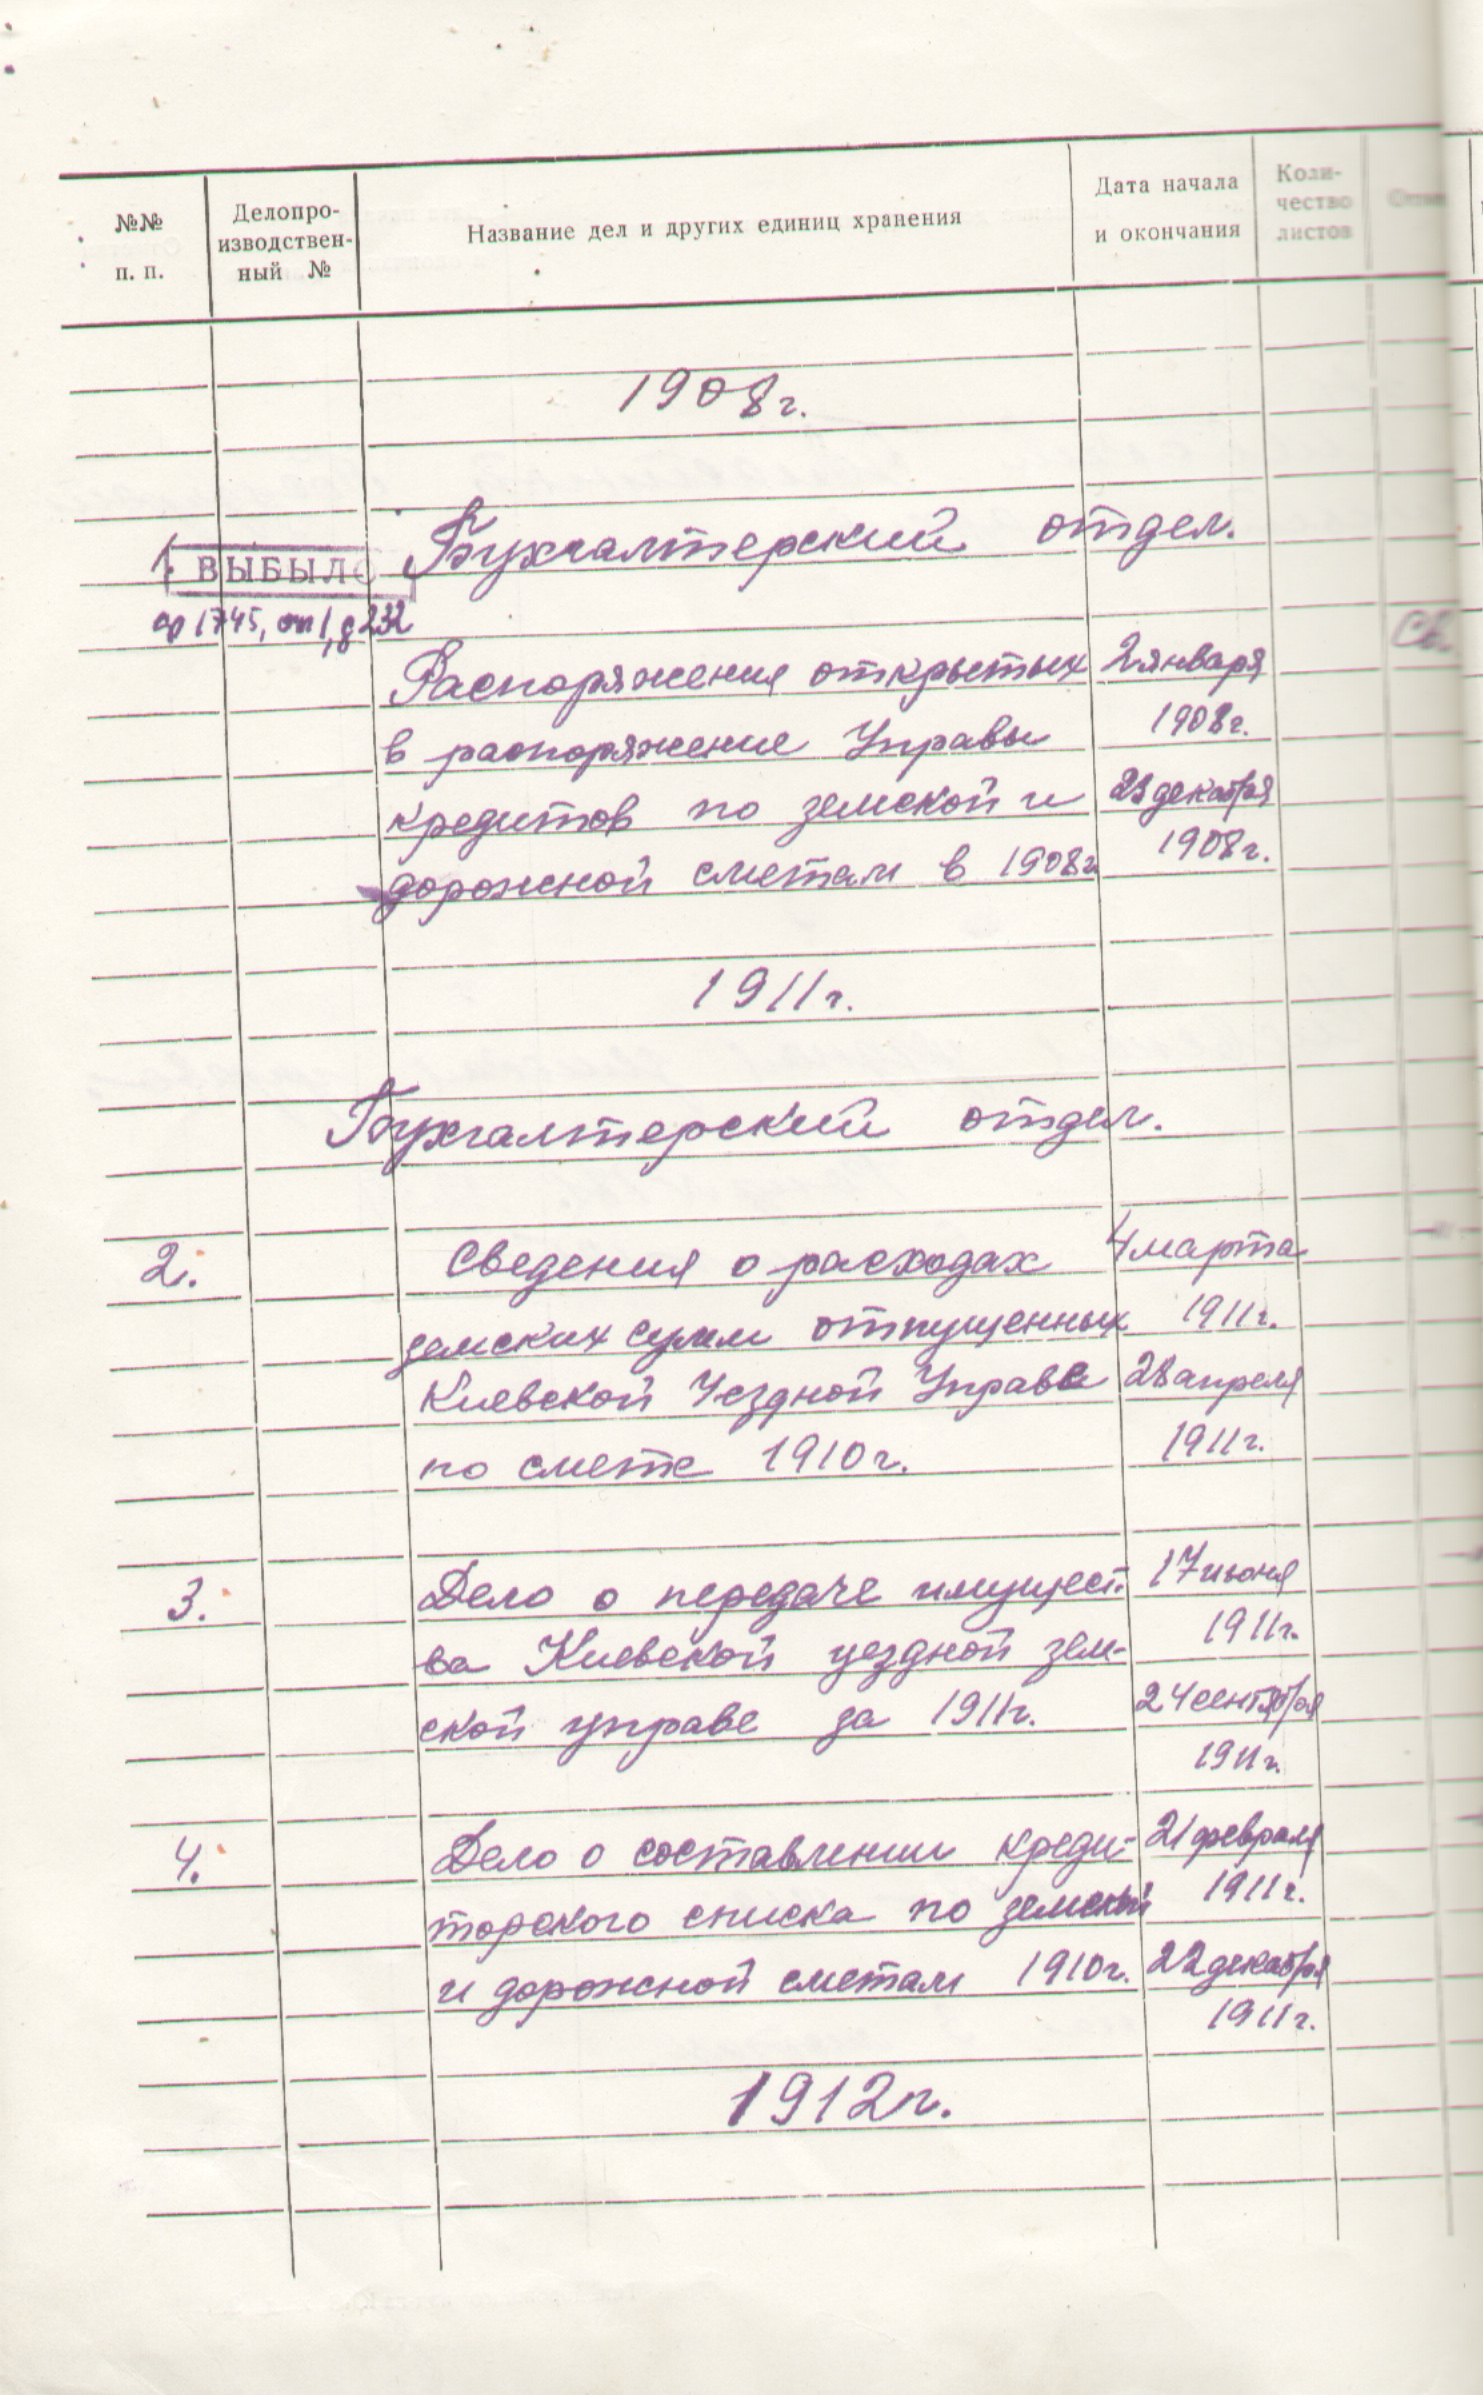 №№ п. п.
Делопро-
изводствен-
ный №
Название дел и других единиц хранения
Дата начала
и окончания
Коли-
чество
листов
1908г.
Бухгалтерский отдел.
1. ВЫБЫЛО
ф 1745, оп 1, д 232
Распоряжения открытых 2 января
в распоряжение Управы 1908г.
кредитов по земской и декабря
дорожной сметам в 1908г 1908г.
1911г.
Бухгалтерский отдел.
2. Сведения о расходах 4 марта
земских сумм отпущенных 1911г.
Киевской Уездной Управе 28 апреля
по смете 1910г. 1911г.
3. Дело о передаче имущест- 17 июня
ва Киевской уездной зем- 1911г.
ской управе за 1911г. 24 сентября
1911г.
4. Дело о составлении креди- 21 февраля
торского списка по земской 1911г.
и дорожной сметам 1910г. 22 декабря
1911г.
1912г.